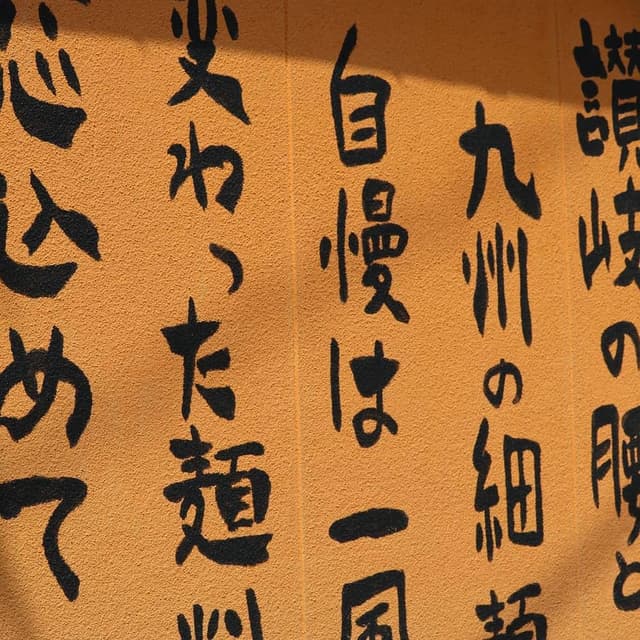 讃岐の腰と
九州の細麺
自慢は一風
変わった麺料
心込めて